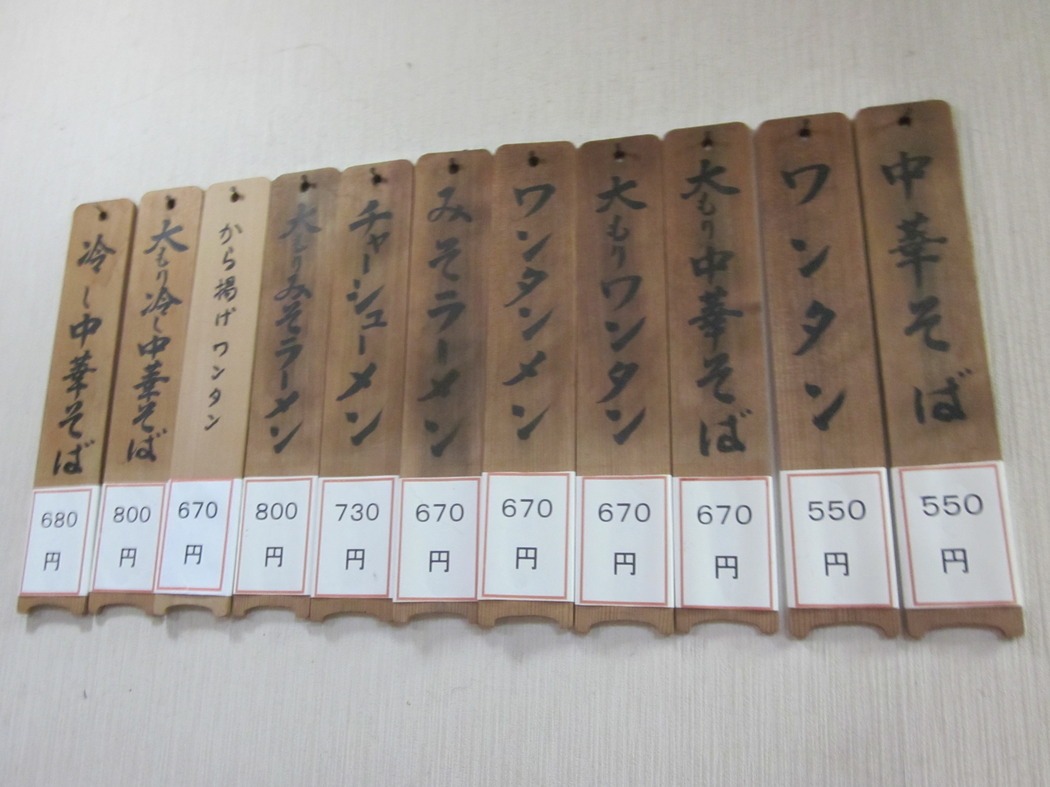 中華そば
550
円
ワンタン
550
円
大もり中華そば
670
円
大もりワンタン
670
円
ワンタンメン
670
円
みそラーメン
670
円
チャーシューメン
730
円
大もりみそラーメン
800
円
から揚げワンタン
670
円
大もり冷し中華そば
800
円
冷し中華そば
680
円